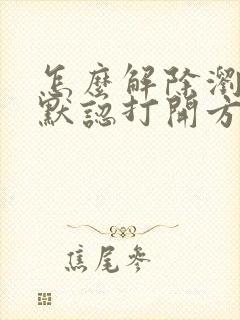 怎麼解除瀏
默認打開方
焦尾參